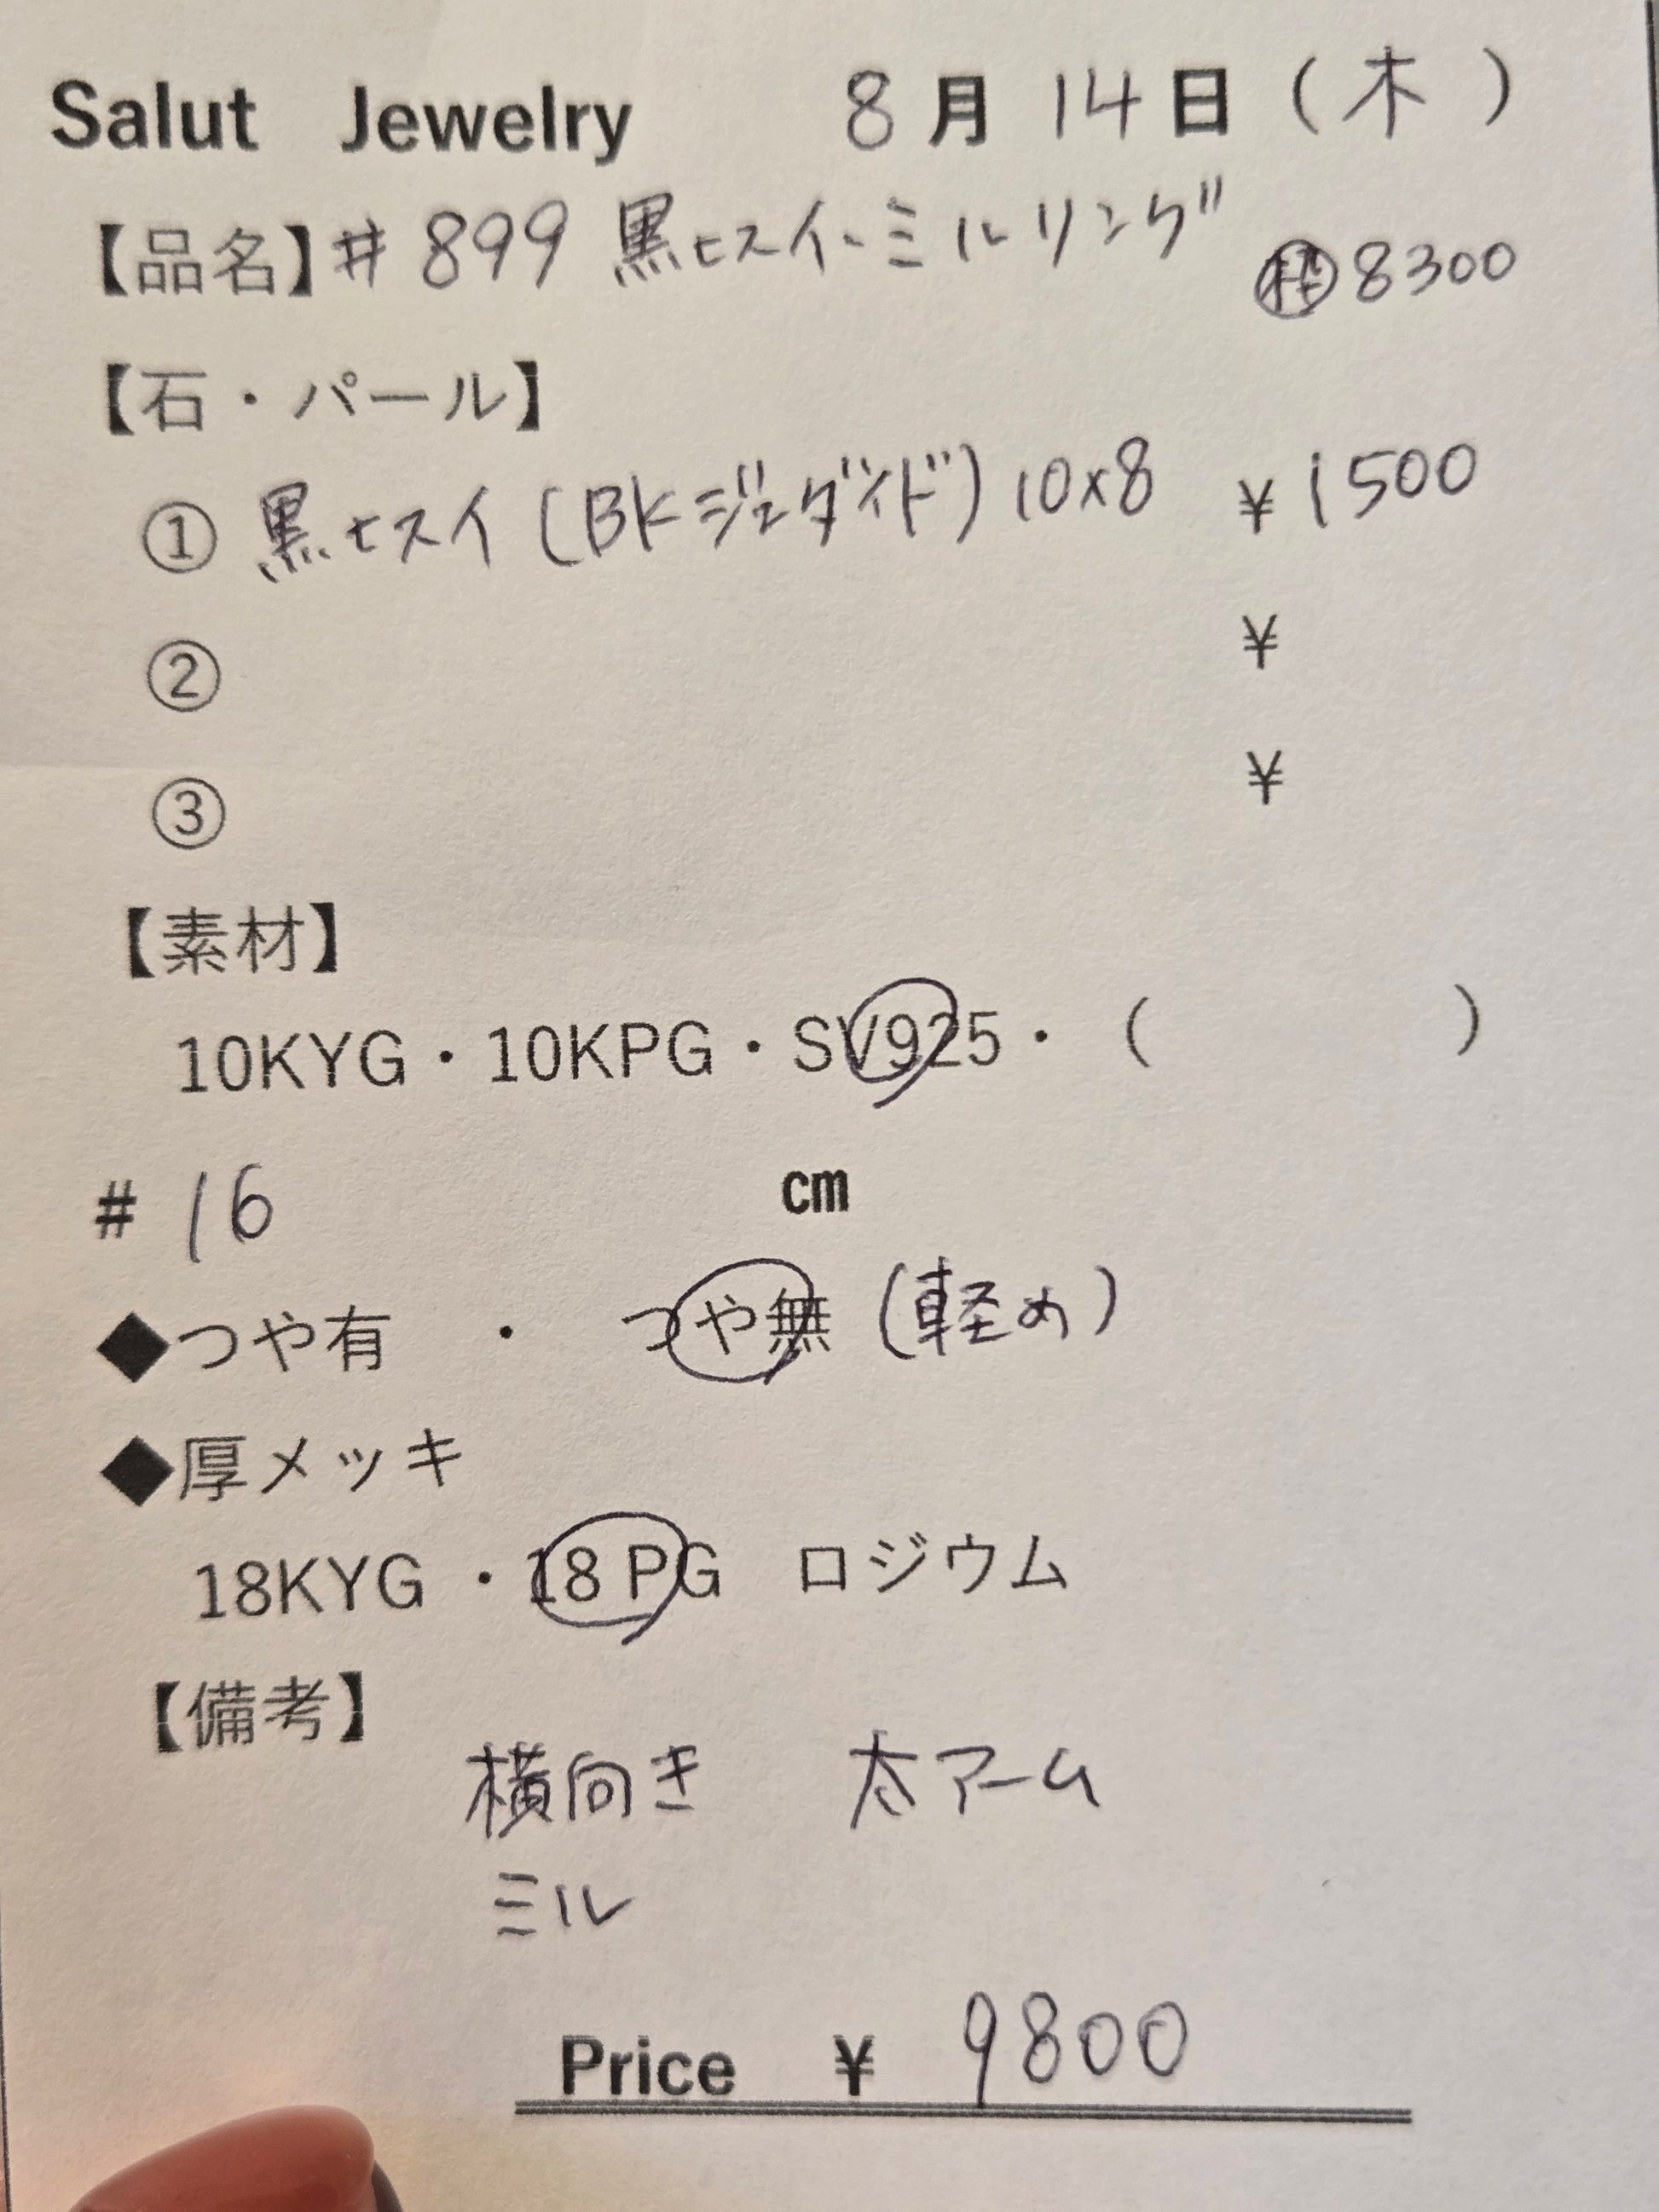 Salut Jewelry 8月14日(木)
【品名】#899 黒ヒスイ・ミルリング 枠8300
【石・パール】
① 黒ヒスイ(BKジェダイド)10×8 ¥1500
② ¥
③ ¥
【素材】
10KYG・10KPG・SV925・( )
# 16 cm
◆つや有 ・ つや無(軽め)
◆厚メッキ
18KYG ・18 PG ロジウム
【備考】
横向き 太アーム
ミル
Price ¥ 9800